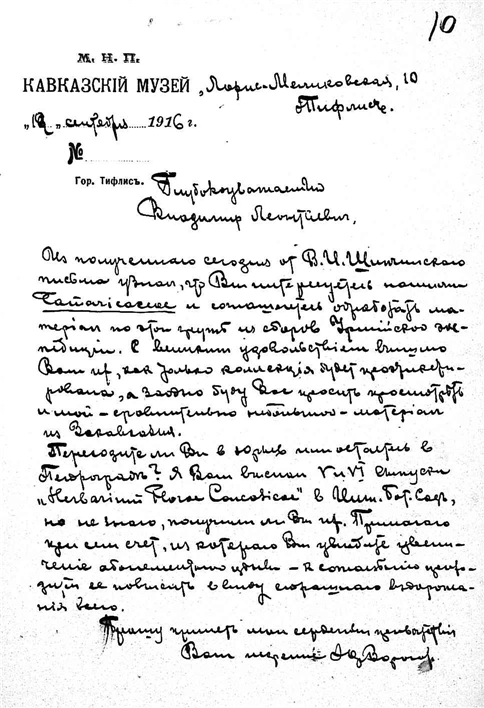 10
М. Н. П.
КАВКАЗСКІЙ МУЗЕЙ
Лорис-Меликовская, 10
Тифлисъ.
„12„ сентября 1916 г.
№
Гор. Тифлисъ.
Глубокоуважаемый
Владимир Леонтьевич,
Из полученного сегодня от В. И.
письма узнал, что Вы интересуетесь нашими
Tamaricaceae и соглашаетесь обработать ма-
теріал по этой группе из сборов Урмийской эк-
педиціи. С великим удовольствіем вышлю
Вам их, как только коллекція будет
а заодно буду Вас просить просмотреть
и мой - сравнительно небольшой - матеріал
из Закавказья.
Переходите ли Вы в Юрьев или остаетесь в
Петрограде? Я Вам выслал V и VI выпуски
„Herbarium Florae Caucasicae" в Имп. Бот. Сад,
но не знаю, получили ли Вы их. Прилагаю
при сем счет, из котораго Вы увидите увели-
ченіе абонементной цены - к сожаленію
ее повысить в виду страшнаго вздорожа-
нія всего.
Прошу принять мои сердечныя
Ваш Ю. Воронов.